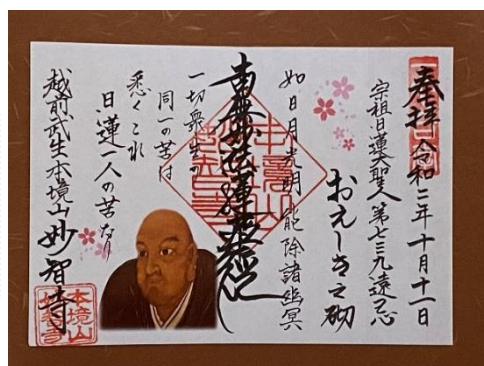 奉拝 令和二年十月十一日
宗祖日蓮大聖人第七三九遠忌
おえしき之砌
如日月光明 能除諸幽冥
南無妙法蓮華経
一切衆生の
同一の苦は
悉くこれ
日蓮一人の苦なり
越前武生本境山 妙智寺
本境山
妙智寺